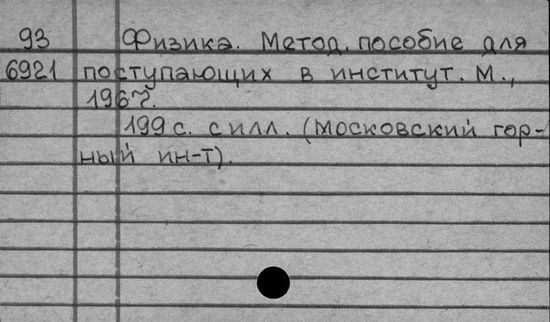 93 Физика. Метод. пособие для
6921 поступающих в институт. М.,
1967.
199 с. с илл. (Московский гор-
ный ин-т).